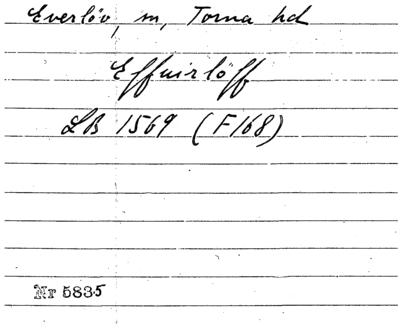 Everlöv, m, Torna hd
Effuirlöff
LB 1569 (F168)
Nr 5835